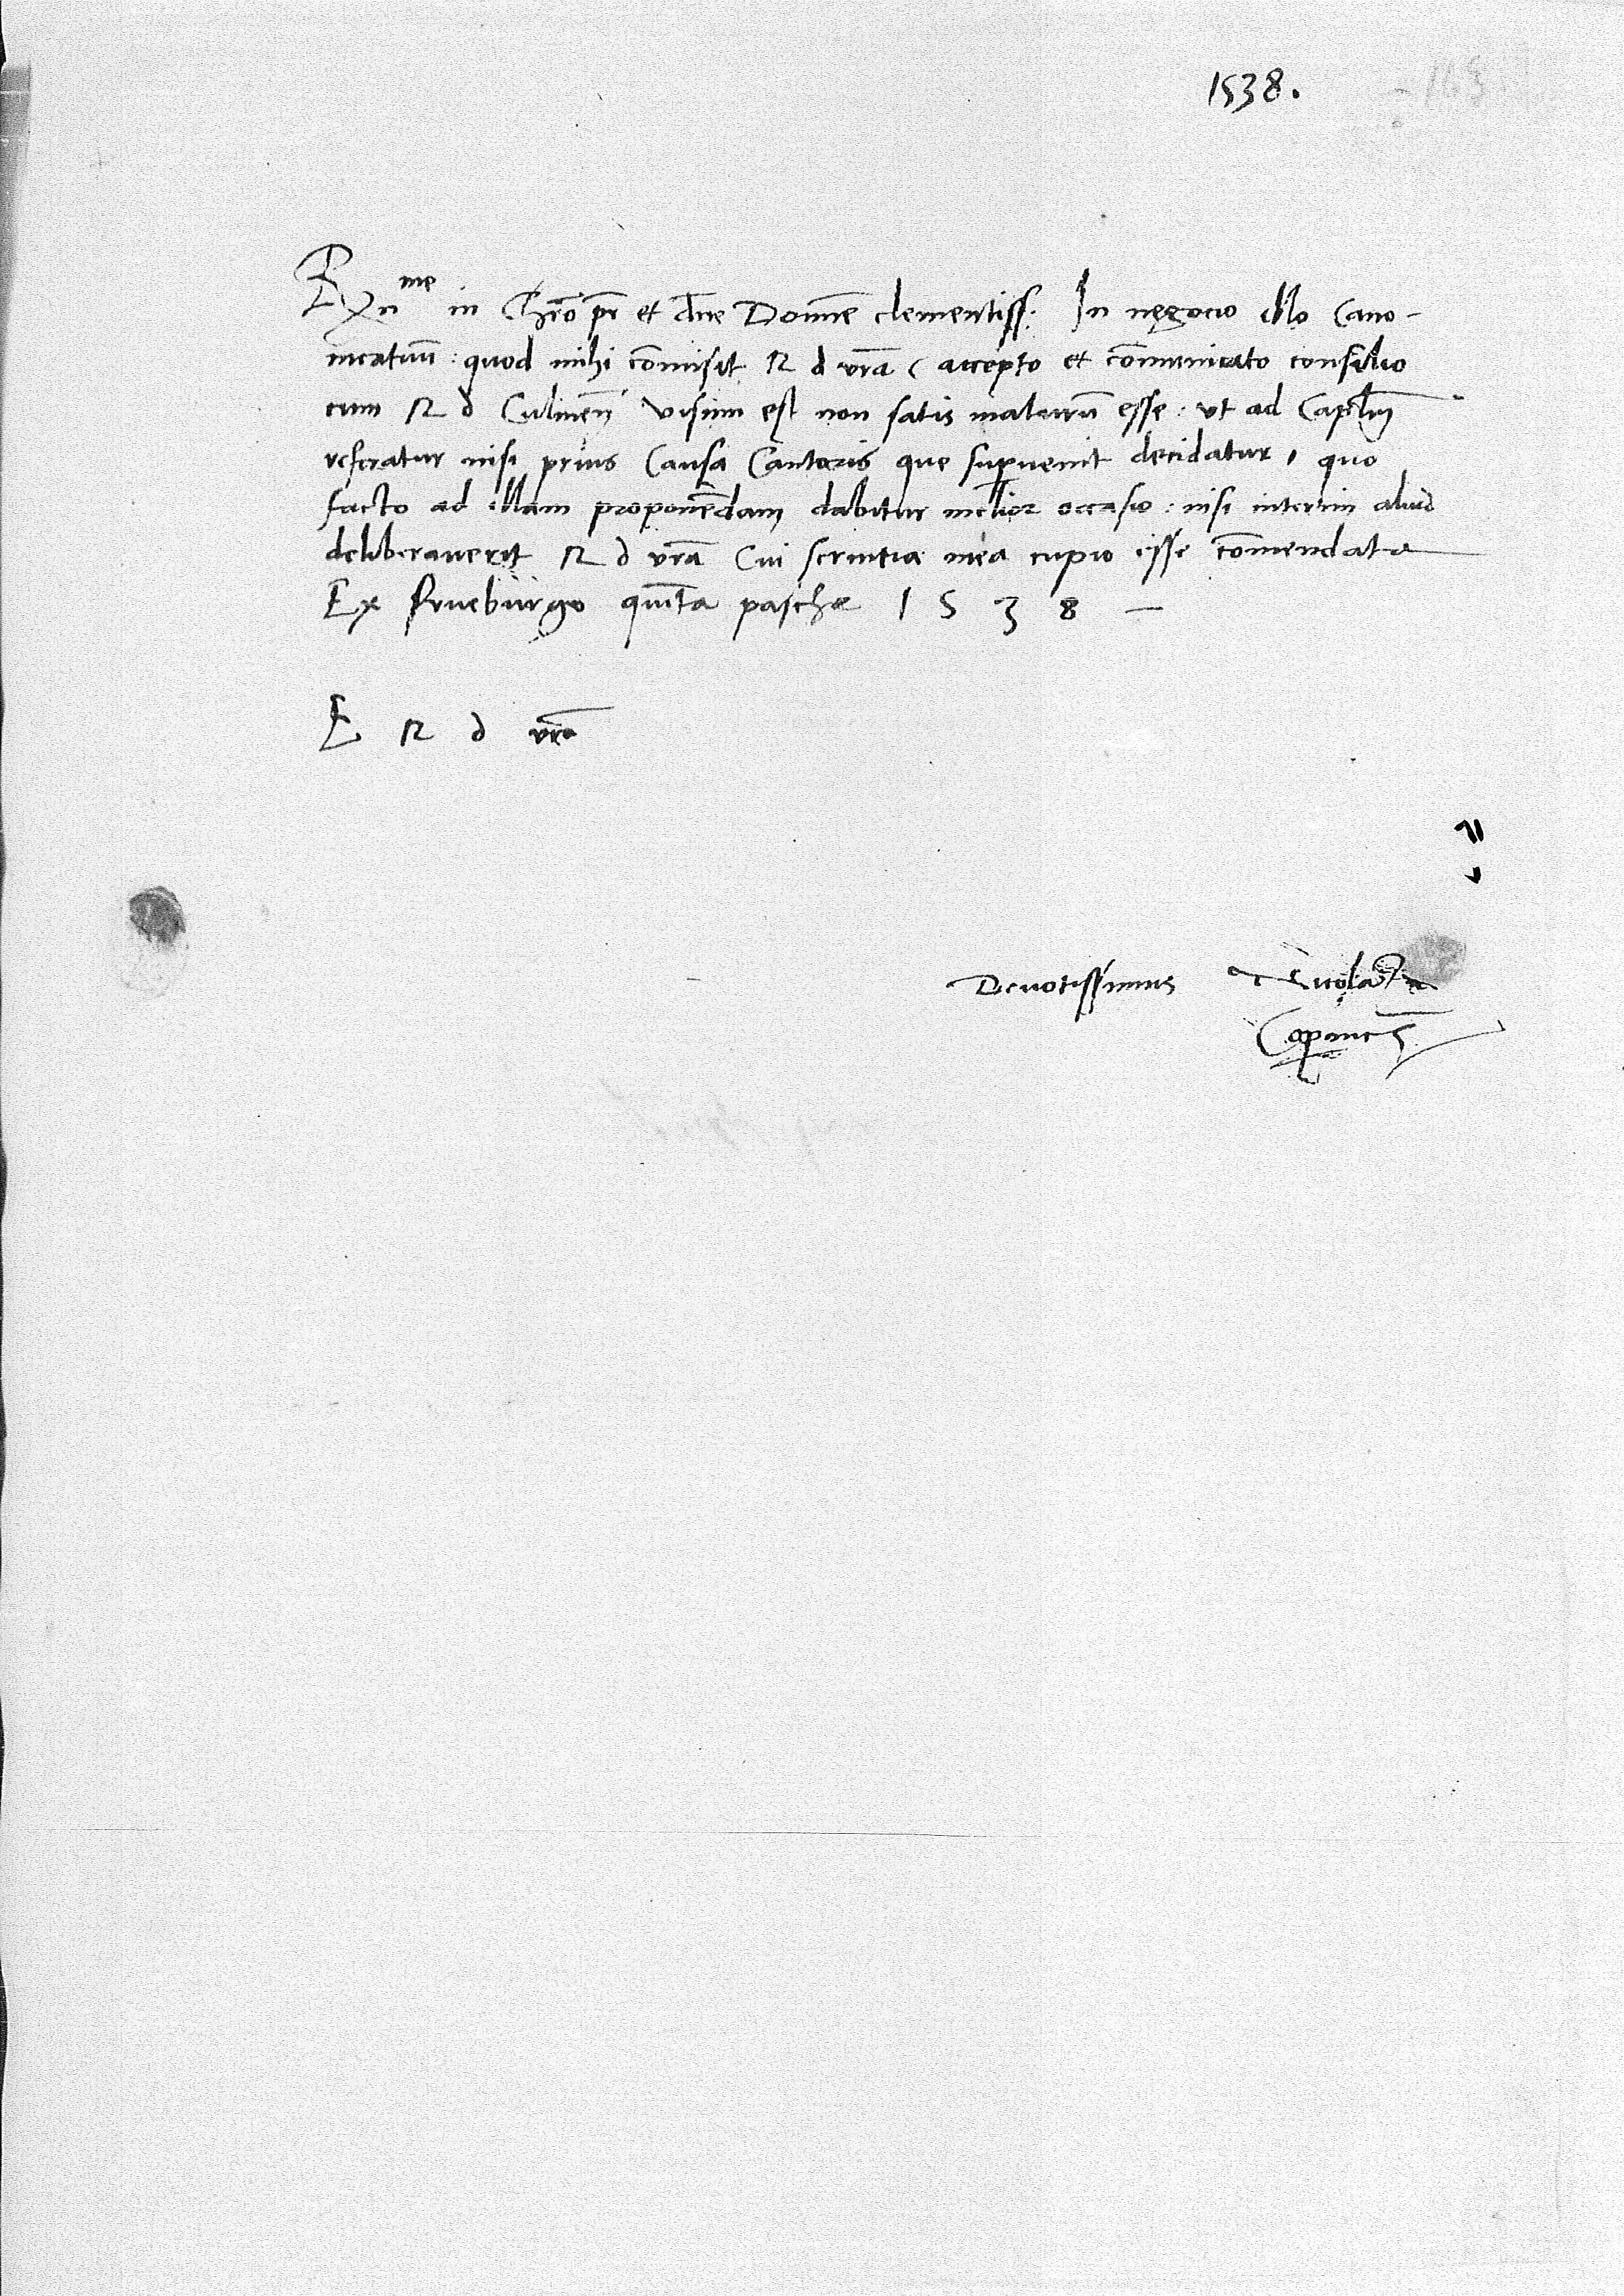 1538.
Rx̄n me in Chr̄o pr̄ et dn̄e Domn̄e clementiss: In negocio illo Cano-
nicatuū: quod mihi com̄isit R d vr̄a (accepto et com̄unicato consilio
cum R d Culmen̄ visum est non satis maturū esse: vt ad Caplm̄
referatur nisi prius Causa Cantoris que supuenit decidatur, quo
facto ad illam proponēdam dabitur melior occasio: nisi interim aliud
deliberauerit R d vr̄a Cui seruitia mea cupio esse com̄endata
Ex Frueburgo quīta pasche 1538 —
E R d vr̄a
Deuotissimus Nicolaus
Coppernic